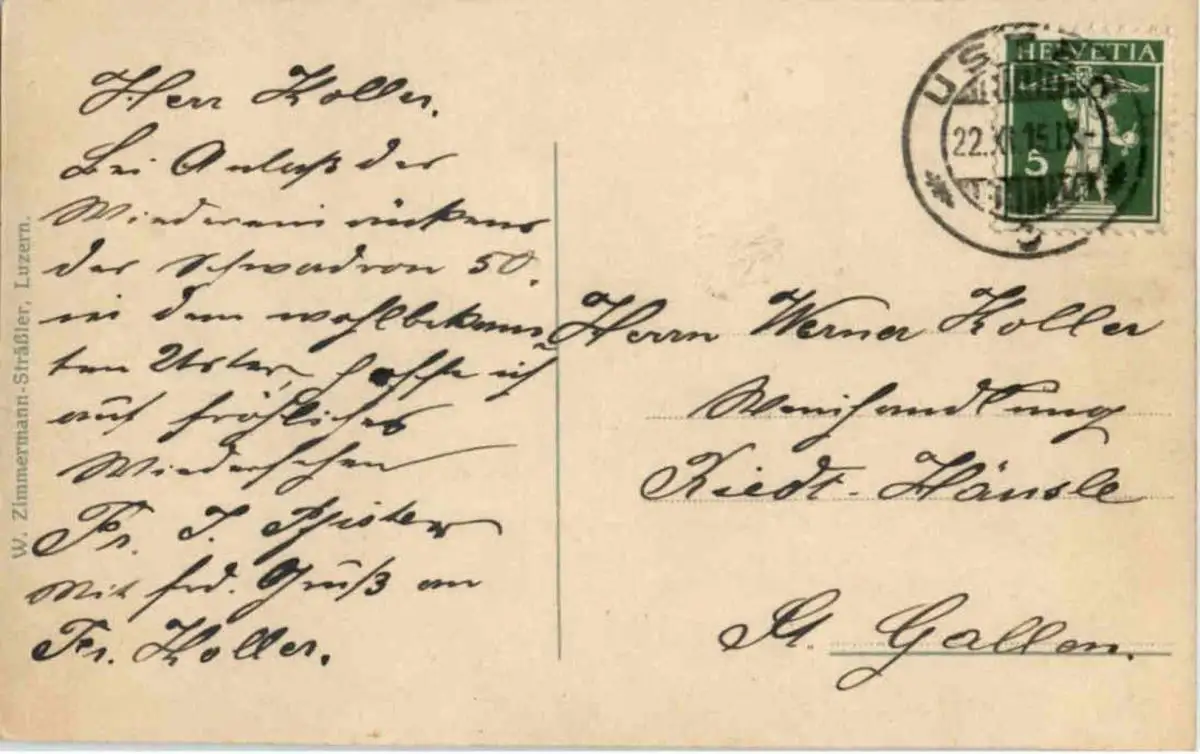 Herr Koller.
Bei Anlaß des
Wiedereinrückens
der Schwadron 50.
in dem wohlbekann-
ten Uster, hoffe ich
auf fröhliches
Wiedersehen
Fr. J. Pfister
Mit frd. Gruß an
Fr. Koller.
W. Zimmermann-Sträßler, Luzern.
HELVETIA
5
USTER
22.XI.15.IX-
Herrn Werner Koller
Weinhandlung
Riedt-Häusle
St. Gallen.